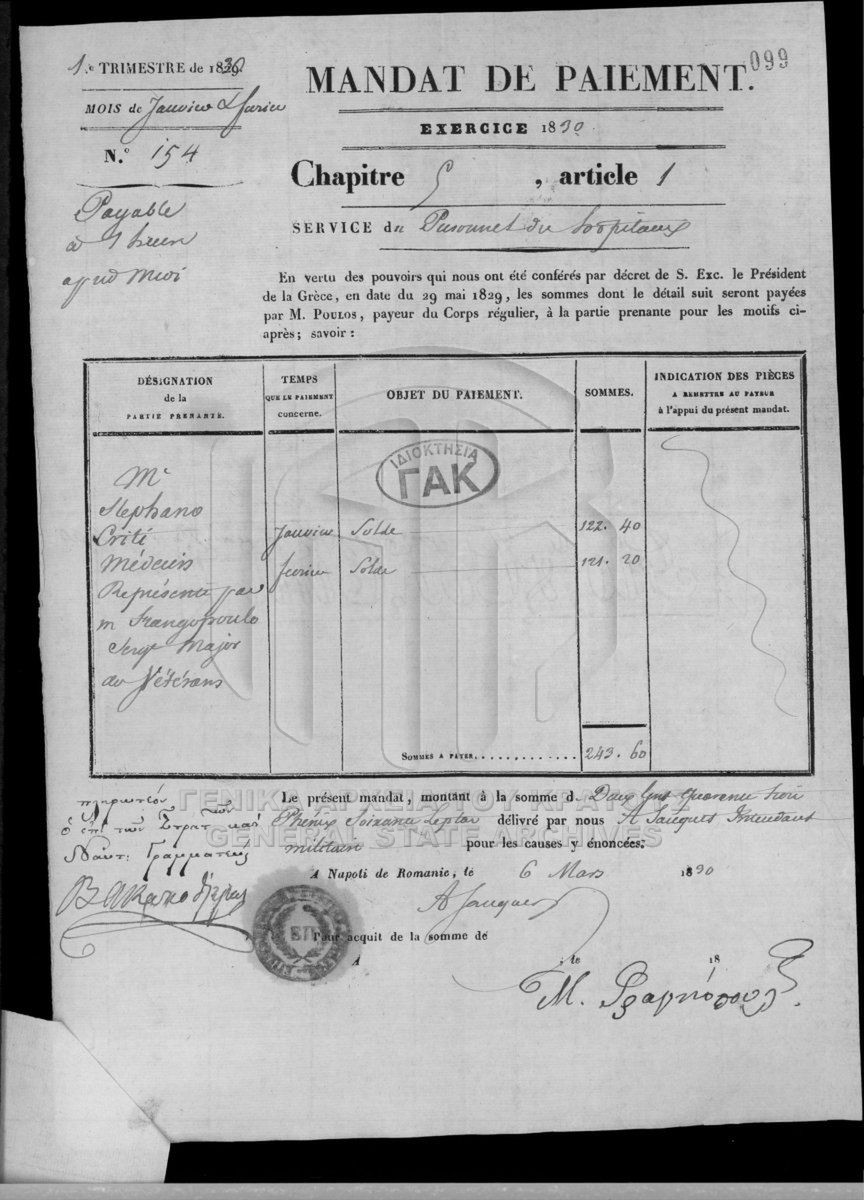 1.e TRIMESTRE de 1830.
099
MOIS de Janvier & fevrier
N.º 154
Payable
a 1 heure
apred Midi
MANDAT DE PAIEMENT.
EXERCICE 1830.
Chapitre 5, article 1
SERVICE du Personnel du hopitaux
En vertu des pouvoirs qui nous ont été conférés par décret de S. Exc. le Président
de la Grèce, en date du 29 mai 1829, les sommes dont le détail suit seront payées
par M. POULOS, payeur du Corps régulier, à la partie prenante pour les motifs ci-
après; savoir :
DÉSIGNATION
de la
PARTIE PRENANTE.
TEMPS
QUE LE PAIEMENT
concerne.
OBJET DU PAIEMENT.
SOMMES.
INDICATION DES PIÈCES
A REMETTRE AU PAYEUR
à l'appui du présent mandat.
ΙΔΙΟΚΤΗΣΙΑ
ΓΑΚ
Mr
Stephano
Criti Janvier Solde 122. 40
Médecin fevrier Solde 121. 20
Représenté par
m frangopoulo
Serg. Major
du Vétérans
SOMMES A PAYER 243. 60
ΓΕΝΙΚΑ ΑΡΧΕΙΑ ΤΟΥ ΚΡΑΤΟΥΣ
GENERAL STATE ARCHIVES
Le présent mandat, montant à la somme d. Deux Cent quarante trois
Phénix Soixante Leptas délivré par nous A Jacques Intendant
militaire pour les causes y énoncées.
A Napoli de Romanie, le 6 Mars 1830
πληρωτέον
ὁ ἐπὶ τῶν Στρατ. καὶ τῶν
Ναυτ. Γραμματεὺς
A Jacques
Pour acquit de la somme de
A , le 18
Μ. Φραγκόπουλος.